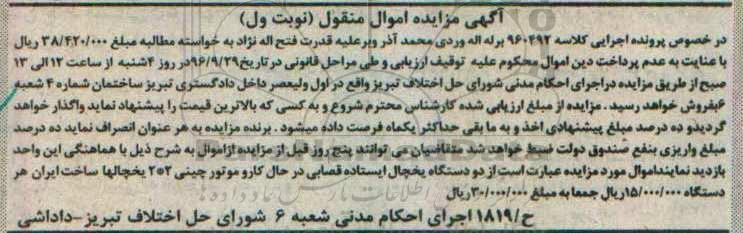 آگهی مزایده اموال منقول (نوبت ول)
در خصوص پرونده اجرایی کلاسه ۹۶۰۴۹۲ برله اله وردی محمد آذر وبرعلیه قدرت فتح اله نژاد به خواسته مطالبه مبلغ ۳۸/۴۲۰/۰۰۰ ریال
با عنایت به عدم پرداخت دین اموال محکوم علیه توقیف ارزیابی و طی مراحل قانونی در تاریخ ۹۶/۹/۲۹در روز ۴شنبه از ساعت ۱۲الی ۱۳
صبح از طریق مزایده دراجرای احکام مدنی شورای حل اختلاف تبریز واقع در اول ولیعصر داخل دادگستری تبریز ساختمان شماره ۴ شعبه
۶بفروش خواهد رسید . مزایده از مبلغ ارزیابی شده کارشناس محترم شروع و به کسی که بالاترین قیمت را پیشنهاد نماید واگذار خواهد
گردیدو ده درصد مبلغ پیشنهادی اخذ و به ما بقی حداکثر یکماه فرصت داده میشود . برنده مزایده به هر عنوان انصراف نماید ده درصد
مبلغ واریزی بنفع صندوق دولت ضبط خواهد شد متقاضیان می توانند پنج روز قبل از مزایده ازاموال به شرح ذیل با هماهنگی این واحد
بازدید نماینداموال مورد مزایده عبارت است از دو دستگاه یخچال ایستاده قصابی در حال کارو موتور چینی ۲*۲ یخچالها ساخت ایران هر
دستگاه ۱۵/۰۰۰/۰۰۰ریال جمعا به مبلغ ۳۰/۰۰۰/۰۰۰ریال
ح/۱۸۱۹ اجرای احکام مدنی شعبه ۶ شورای حل اختلاف تبریز-داداشی